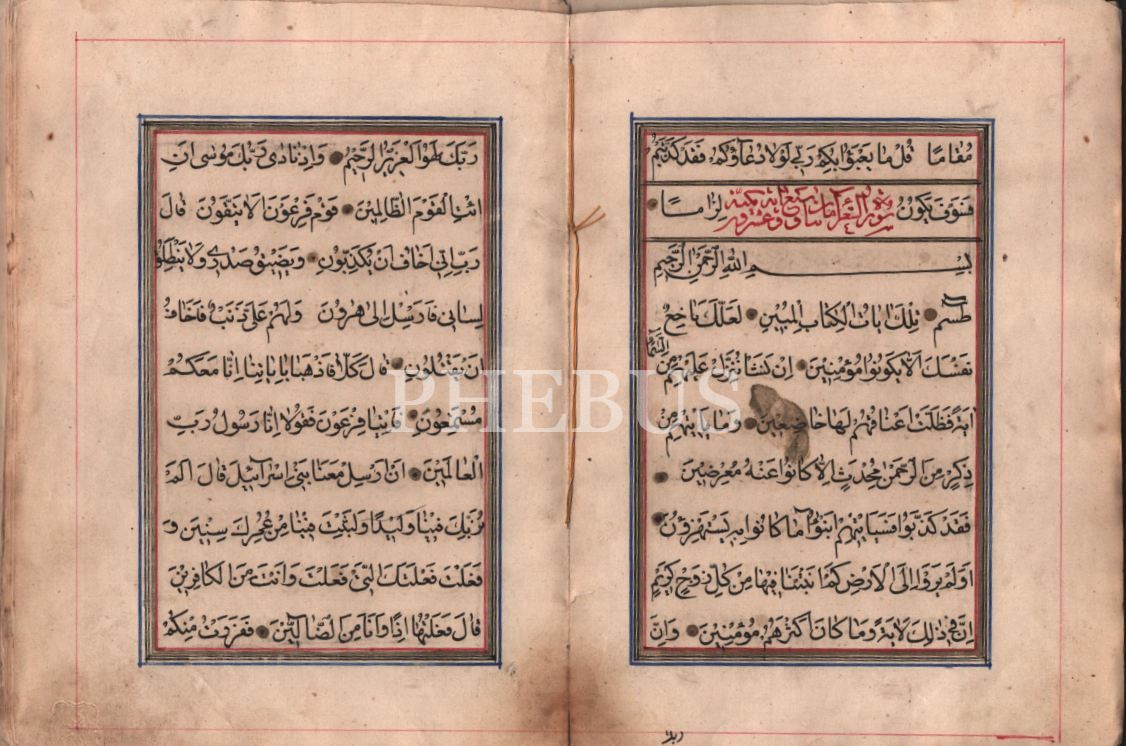 مُقَامًا قُلْ مَا يَعْبَؤُا بِكُمْ رَبِّي لَوْلَا دُعَاؤُكُمْ فَقَدْ كَذَّبْتُمْ
فَسَوْفَ يَكُونُ لِزَامًا
سورة الشعراء مائتان وسبع وعشرون اية مكية
بِسْمِ اللهِ الرَّحْمٰنِ الرَّحِيمِ
طٰسم تِلْكَ اٰيَاتُ الْكِتَابِ الْمُبِينِ لَعَلَّكَ بَاخِعٌ
نَفْسَكَ اَلَّا يَكُونُوا مُؤْمِنِينَ اِنْ نَشَأْ نُنَزِّلْ عَلَيْهِمْ مِنَ
السَّمَاءِ
اٰيَةً فَظَلَّتْ اَعْنَاقُهُمْ لَهَا خَاضِعِينَ وَمَا يَأْتِيهِمْ مِنْ
ذِكْرٍ مِنَ الرَّحْمٰنِ مُحْدَثٍ اِلَّا كَانُوا عَنْهُ مُعْرِضِينَ
فَقَدْ كَذَّبُوا فَسَيَأْتِيهِمْ اَنْبٰٓؤُا مَا كَانُوا بِهِ يَسْتَهْزِؤُنَ
اَوَلَمْ يَرَوْا اِلَى الْاَرْضِ كَمْ اَنْبَتْنَا فِيهَا مِنْ كُلِّ زَوْجٍ كَرِيمٍ
اِنَّ فِي ذٰلِكَ لَاٰيَةً وَمَا كَانَ اَكْثَرُهُمْ مُؤْمِنِينَ وَاِنَّ
ربك
رَبَّكَ لَهُوَ الْعَزِيزُ الرَّحِيمُ وَاِذْ نَادٰى رَبُّكَ مُوسٰى اَنِ
ائْتِ الْقَوْمَ الظَّالِمِينَ قَوْمَ فِرْعَوْنَ اَلَا يَتَّقُونَ قَالَ
رَبِّ اِنِّي اَخَافُ اَنْ يُكَذِّبُونِ وَيَضِيقُ صَدْرِي وَلَا يَنْطَلِقُ
لِسَانِي فَاَرْسِلْ اِلٰى هٰرُونَ وَلَهُمْ عَلَيَّ ذَنْبٌ فَاَخَافُ
اَنْ يَقْتُلُونِ قَالَ كَلَّا فَاذْهَبَا بِاٰيَاتِنَا اِنَّا مَعَكُمْ
مُسْتَمِعُونَ فَأْتِيَا فِرْعَوْنَ فَقُولَا اِنَّا رَسُولُ رَبِّ
الْعَالَمِينَ اَنْ اَرْسِلْ مَعَنَا بَنِي اِسْرَائِيلَ قَالَ اَلَمْ
نُرَبِّكَ فِينَا وَلِيدًا وَلَبِثْتَ فِينَا مِنْ عُمُرِكَ سِنِينَ وَ
فَعَلْتَ فَعْلَتَكَ الَّتِي فَعَلْتَ وَاَنْتَ مِنَ الْكَافِرِينَ
قَالَ فَعَلْتُهَا اِذًا وَاَنَا مِنَ الضَّالِّينَ فَفَرَرْتُ مِنْكُمْ
PHEBUS